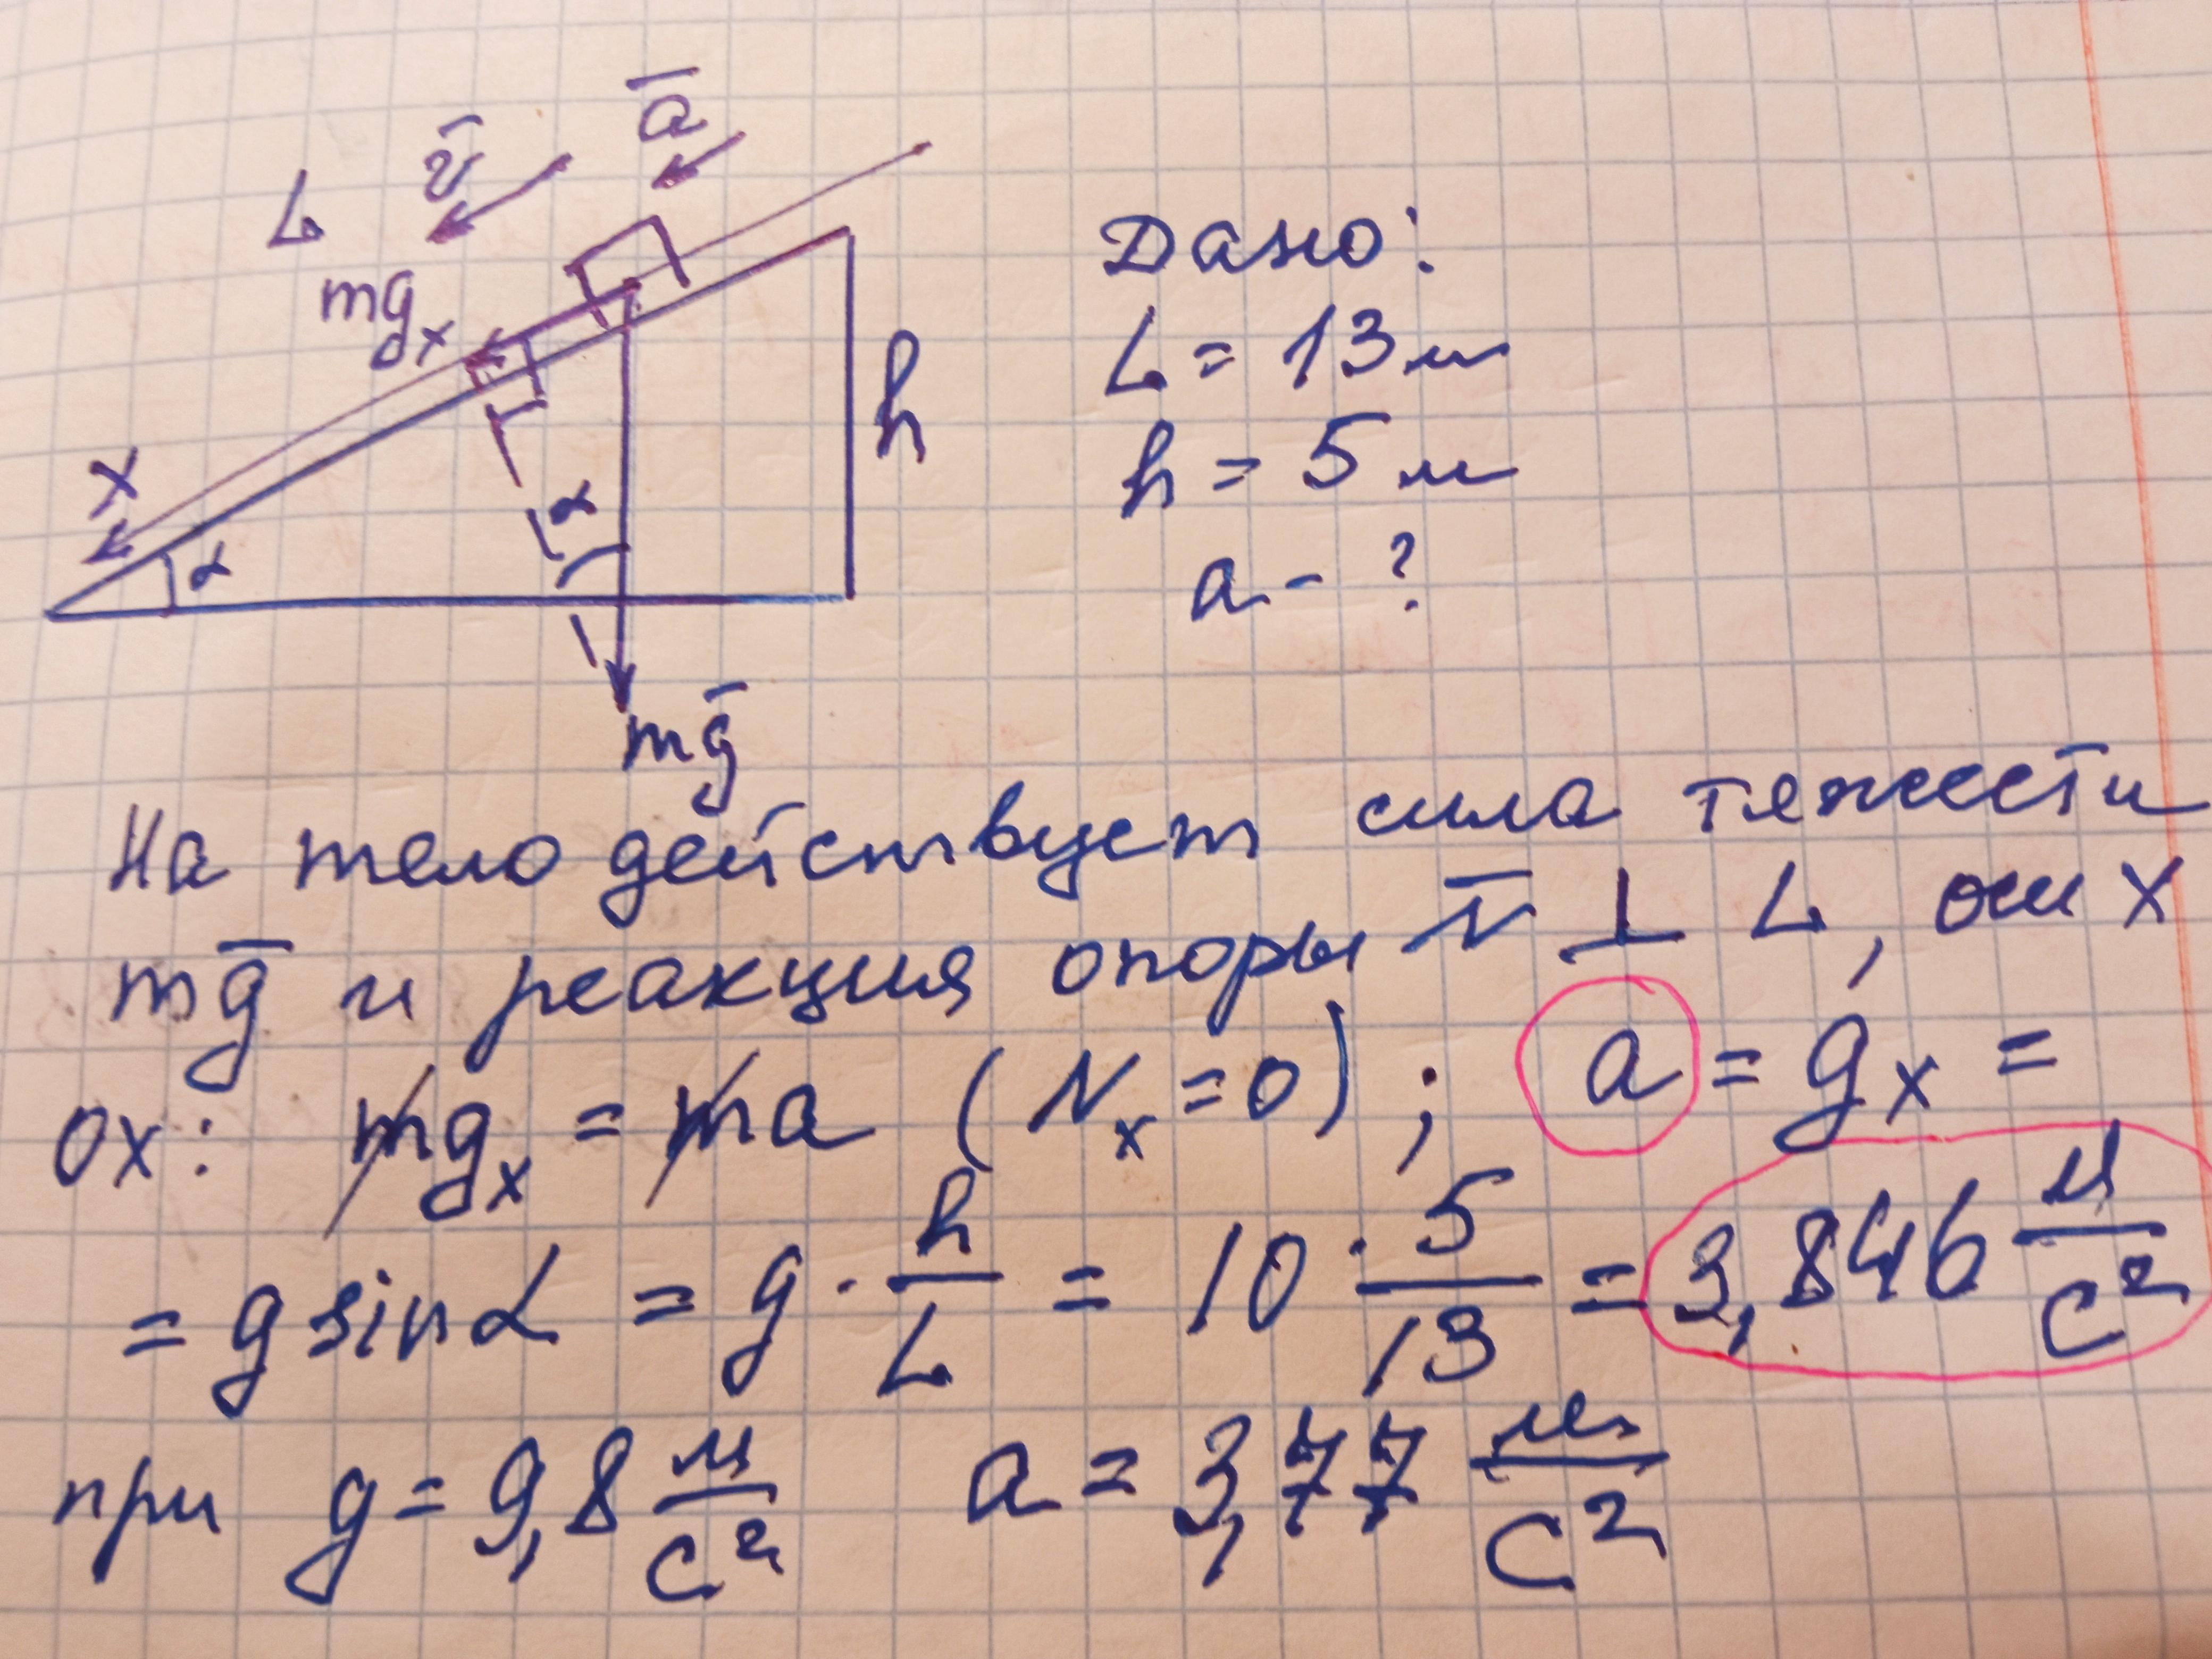 a̅
v̅
L
mgₓ
x
α
α
h
mg̅
Дано:
L = 13 м
h = 5 м
a - ?
На тело действует сила тяжести
mg̅ и реакция опоры N̅ ⊥ L, оси x
ox: mgₓ = ma (Nₓ = 0); a = gₓ =
= g sin α = g · h/L = 10 · 5/13 = 3,846 м/с²
при g = 9,8 м/с² a = 3,77 м/с²